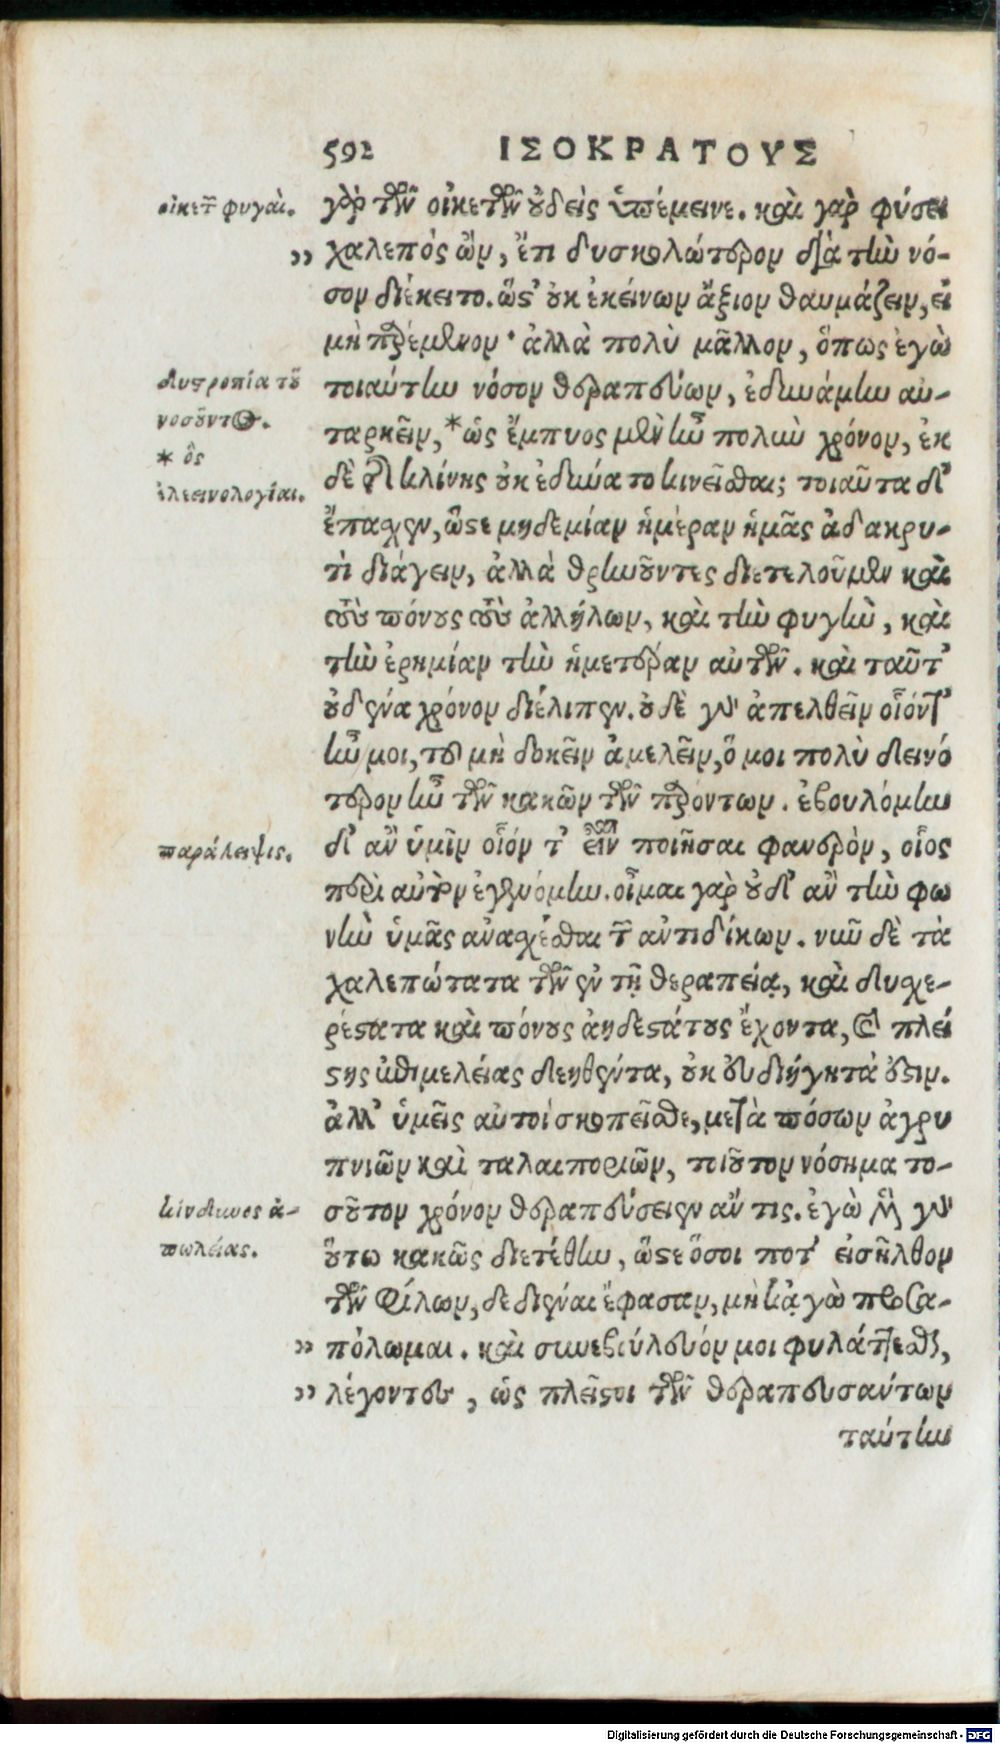 592 ΙΣΟΚΡΑΤΟΥΣ
οἰκετῶν φυγαί.
γὰρ τῶν οἰκετῶν οὐδεὶς ὑπέμεινε. καὶ γὰρ φύσει
„ χαλεπὸς ὢν, ἔτι δυσκολώτερον διὰ τὴν νό-
σον διέκειτο. ὥστ' οὐκ ἐκείνων ἄξιον θαυμάζειν, εἰ
μὴ παρέμενον· ἀλλὰ πολὺ μᾶλλον, ὅπως ἐγὼ
δυστροπία τοῦ
τοιαύτην νόσον θεραπεύων, ἐδυνάμην αὐ-
νοσοῦντος.
ταρκεῖν, *ὡς ἔμπυος μὲν ἦν πολὺν χρόνον, ἐκ
* ὃς
δὲ τῆς κλίνης οὐκ ἐδύνατο κινεῖσθαι; τοιαῦτα δ'
ἐλεεινολογίαι.
ἔπασχεν, ὥστε μηδεμίαν ἡμέραν ἡμᾶς ἀδακρυ-
τὶ διάγειν, ἀλλὰ θρηνοῦντες διετελοῦμεν καὶ
τοὺς πόνους τοὺς ἀλλήλων, καὶ τὴν φυγὴν, καὶ
τὴν ἐρημίαν τὴν ἡμετέραν αὐτῶν. καὶ ταῦτ'
οὐδένα χρόνον διέλιπεν. οὐδὲ γὰρ ἀπελθεῖν οἷόντ'
ἦν μοι, τοῦ μὴ δοκεῖν ἀμελεῖν, ὅ μοι πολὺ δεινό
τερον ἦν τῶν κακῶν τῶν παρόντων. ἐβουλόμην
παράλειψις.
δ' ἂν ὑμῖν οἷόν τ' εἶναι ποιῆσαι φανερὸν, οἷος
περὶ αὐτὸν ἐγενόμην. οἶμαι γὰρ οὐδ' ἂν τὴν φω
νὴν ὑμᾶς ἀνασχέσθαι τῶν ἀντιδίκων. νῦν δὲ τὰ
χαλεπώτατα τῶν ἐν τῇ θεραπείᾳ, καὶ δυσχε-
ρέστατα καὶ πόνους ἀηδεστάτους ἔχοντα, καὶ πλεί
στης ἐπιμελείας δεηθέντα, οὐκ εὐδιήγητά ἐστιν.
ἀλλ' ὑμεῖς αὐτοὶ σκοπεῖσθε, μετὰ πόσων ἀγρυ
πνιῶν καὶ ταλαιποριῶν, τοιοῦτον νόσημα το-
κίνδυνος ἀ-
σοῦτον χρόνον θεραπεύσειεν ἄν τις. ἐγὼ μὲν γὰρ
πωλείας.
οὕτω κακῶς διετέθην, ὥστε ὅσοι ποτ' εἰσῆλθον
τῶν φίλων, δεδιέναι ἔφασαν, μὴ κἀγὼ προσα-
„ πόλωμαι. καὶ συνεβούλευόν μοι φυλάττεσθαι,
„ λέγοντες, ὡς πλεῖστοι τῶν θεραπευσάντων
ταύτην
Digitalisierung gefördert durch die Deutsche Forschungsgemeinschaft - DFG